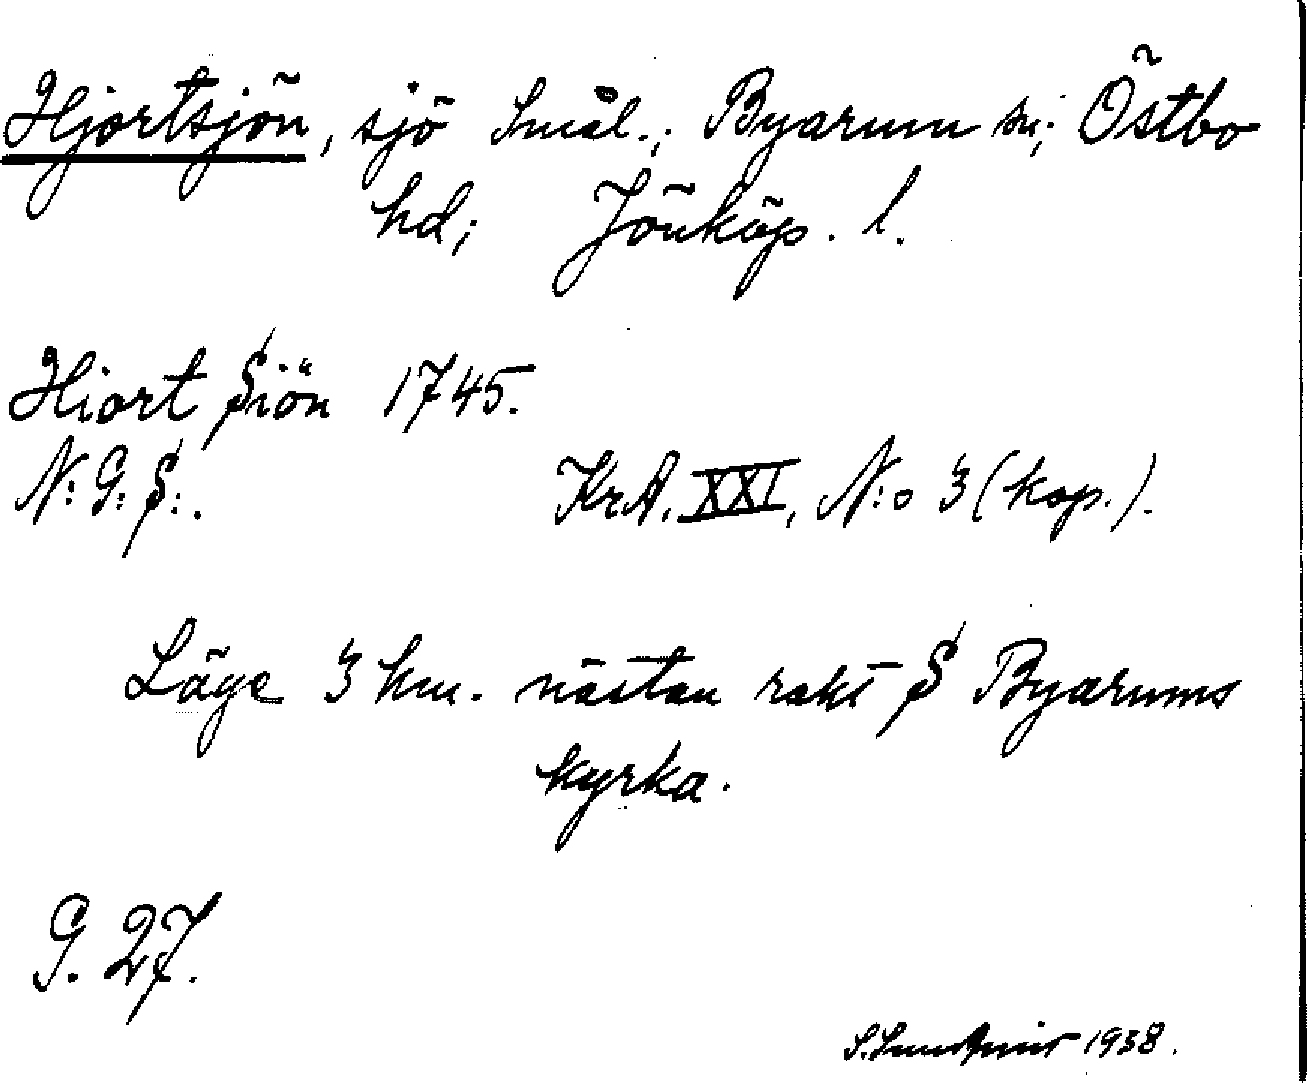 Hjortsjön, sjö Smål.; Byarum sn; Östbo
hd; Jönköp. l.
Hiort Siön 1745.
N: G: S:. KrA. XXI, N:o 3 (kop.).
Läge 3 km. nästan rakt S Byarums
kyrka.
G. 27.
1938.